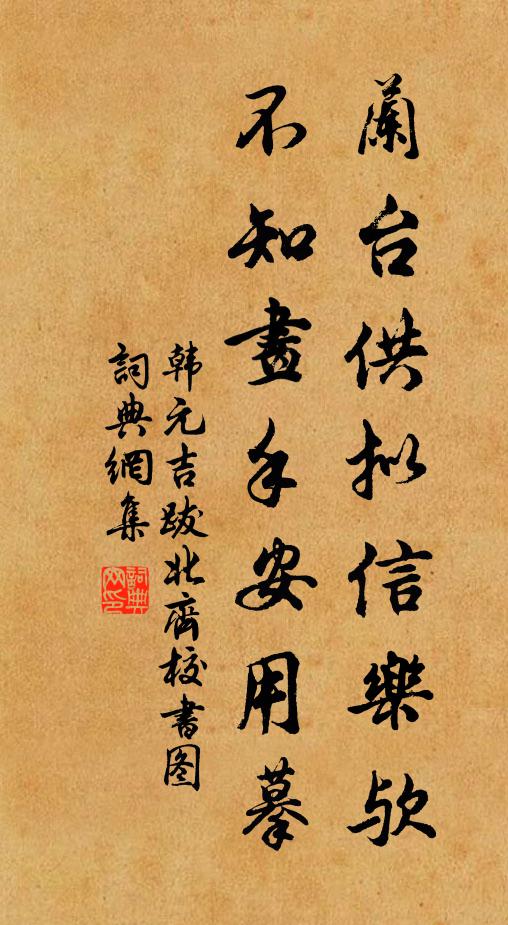 蘭台供拟信樂欤
不知畫手安用摹
韩元吉跋北齊校書图
詞典網集
詞典網印